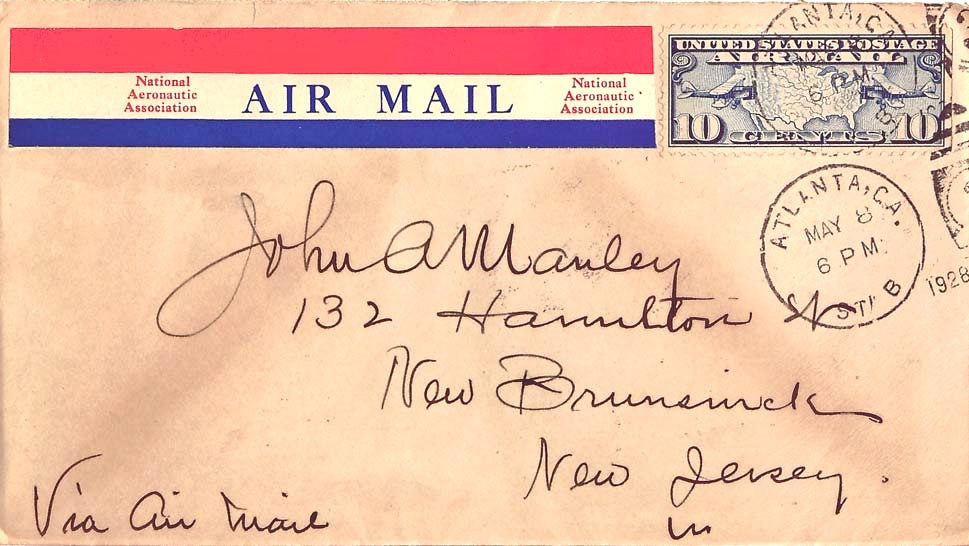 National
Aeronautic
Association
AIR MAIL
National
Aeronautic
Association
UNITED STATES POSTAGE
AIR MAIL
10 CENTS 10
ATLANTA, GA.
MAY 8
6 PM
STA B
1928
John A Manley
132 Hamilton St
New Brunswick
New Jersey.
Via Air Mail